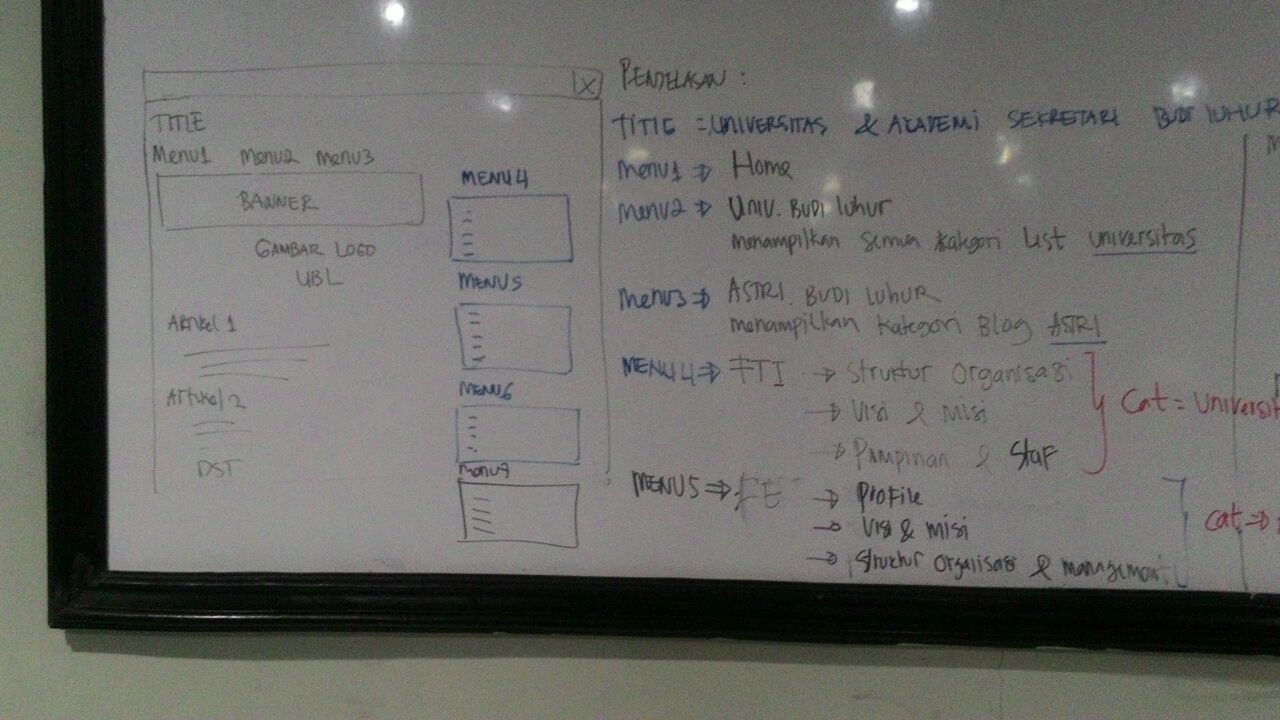 X
TITLE
Menu1 menu2 menu3
BANNER
GAMBAR LOGO
UBL
Artikel 1
Artikel 2
DST
MENU4
MENU5
MENU6
Menu7
PENJELASAN :
TITLE = UNIVERSITAS & AKADEMI SEKRETARI BUDI LUHUR
menu1 ⇒ Home
menu2 ⇒ UNIV. BUDI luhur
menampilkan semua kategori List universitas
menu3 ⇒ ASTRI. BUDI luhur
menampilkan kategori Blog ASTRI
MENU4 ⇒ FTI → Struktur Organisasi
→ Visi & Misi
→ Pampinan & Staf
Cat = Universit
MENU5 ⇒ FE → Profile
→ Visi & misi
→ Struktur Orgaiisasi & management
Cat ⇒